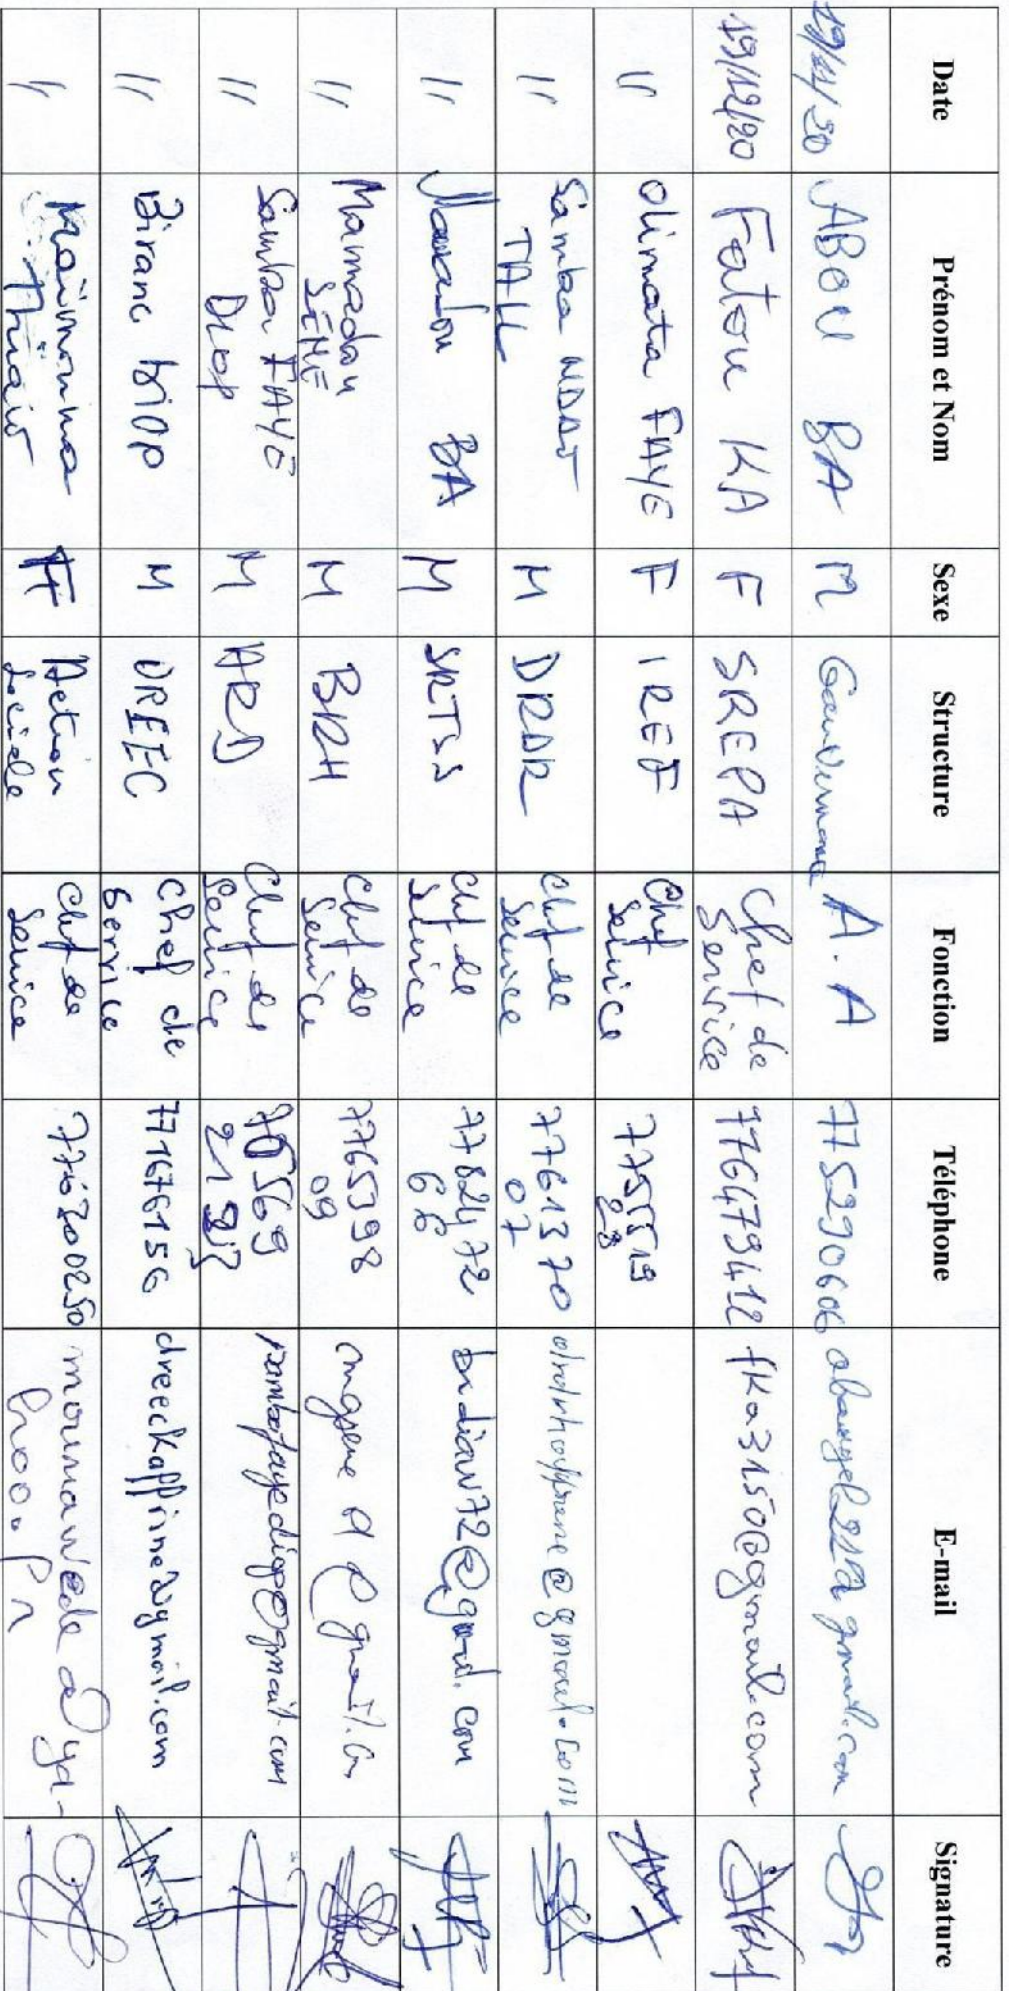 Date Prénom et Nom Sexe Structure Fonction Téléphone E-mail Signature
ABOU BA M Gouvernance A.A 775290606
19/12/20 Fatou KA F SREPA Chef de Service 776479412 fka3150@gmail.com
" Olimata FAYE F IREF Chef Service 7755519 23
" Samba NDAO TALL M DRDR Chef de Service 7761370 07
" Mamadou BA M SRTSS Chef de Service 7782472 66
" Mamadou SENE M BRH Chef de Service 7765398 09
" Samba FAYE Diop M ARD Chef de Service sambafayediop@gmail.com
" Birane Diop M DREEC Chef de Service 771676156 dreeckaffrine@gmail.com
" Maïmouna Thiaw F Action Sociale Chef de Service 776300250